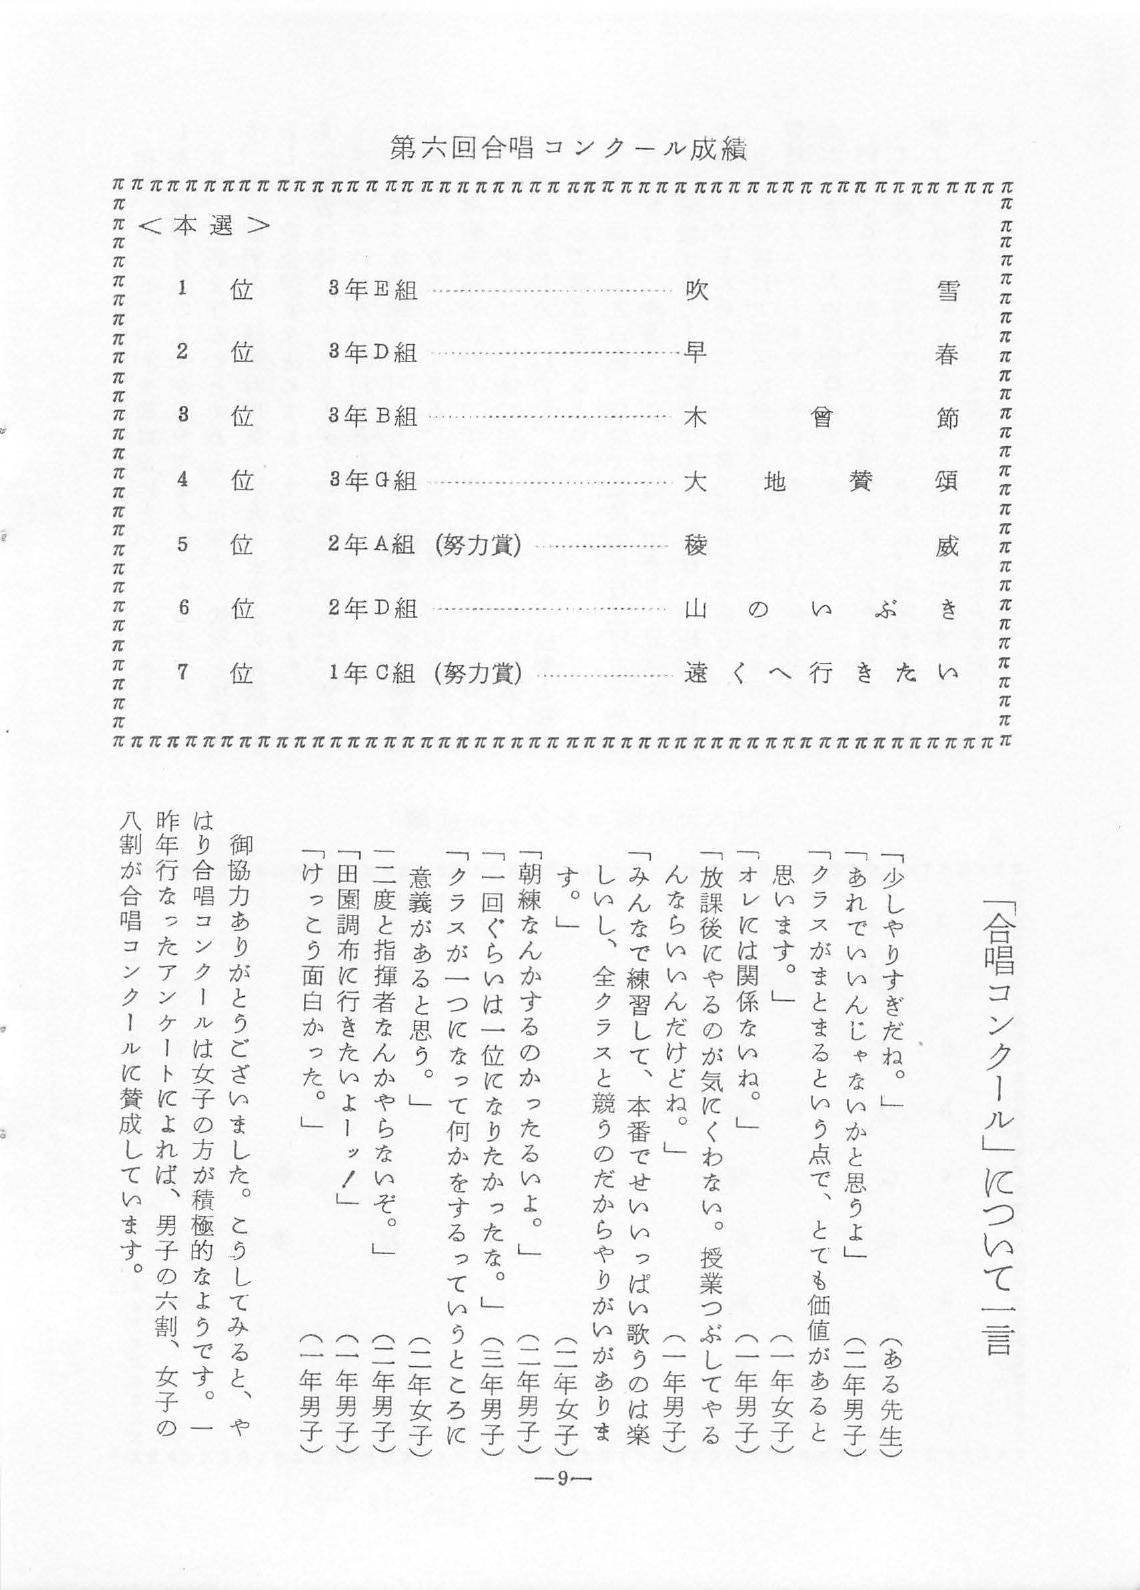 第六回合唱コンクール成績
＜本選＞
1位 3年E組 …… 吹雪
2位 3年D組 …… 早春
3位 3年B組 …… 木曾節
4位 3年G組 …… 大地賛頌
5位 2年A組 (努力賞) …… 稜威
6位 2年D組 …… 山のいぶき
7位 1年C組 (努力賞) …… 遠くへ行きたい
「合唱コンクール」について一言
「少しやりすぎだね。」（ある先生）
「あれでいいんじゃないかと思うよ」（二年男子）
「クラスがまとまるという点で、とても価値があると
思います。」（一年女子）
「オレには関係ないね。」（一年男子）
「放課後にやるのが気にくわない。授業つぶしてやる
んならいいんだけどね。」（一年男子）
「みんなで練習して、本番でせいいっぱい歌うのは楽
しいし、全クラスと競うのだからやりがいがありま
す。」（二年女子）
「朝練なんかするのかったるいよ。」（二年男子）
「一回ぐらいは一位になりたかったな。」（三年男子）
「クラスが一つになって何かをするっていうところに
意義があると思う。」（二年女子）
「二度と指揮者なんかやらないぞ。」（二年男子）
「田園調布に行きたいよーッ！」（一年男子）
「けっこう面白かった。」（一年男子）
御協力ありがとうございました。こうしてみると、や
はり合唱コンクールは女子の方が積極的なようです。一
昨年行なったアンケートによれば、男子の六割、女子の
八割が合唱コンクールに賛成しています。
—9—